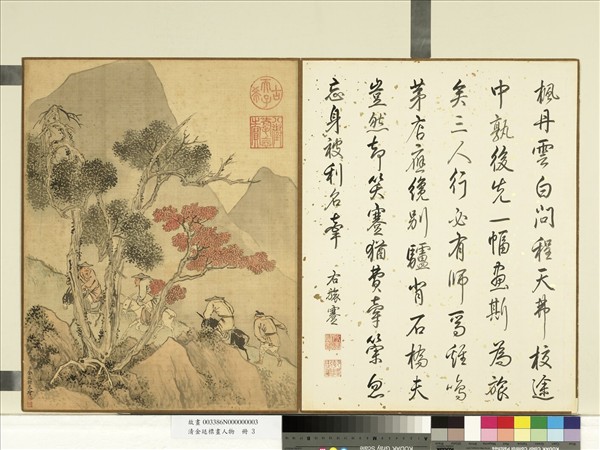 楓丹雲白問程天弗校途
中孰後先一幅畫斯為旅
矣三人行必有師焉雞鳴
茅店應纔別驢背石橋夫
豈然却笑蹇猶費牽策忽
忘身被利名牽
右旅蹇
古稀天子
故畫 003386N000000003
清金廷標畫人物 冊 3